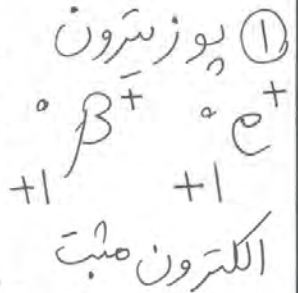 ① پوزیترون
⁰₊₁β⁺ ⁰₊₁e⁺
الکترون مثبت